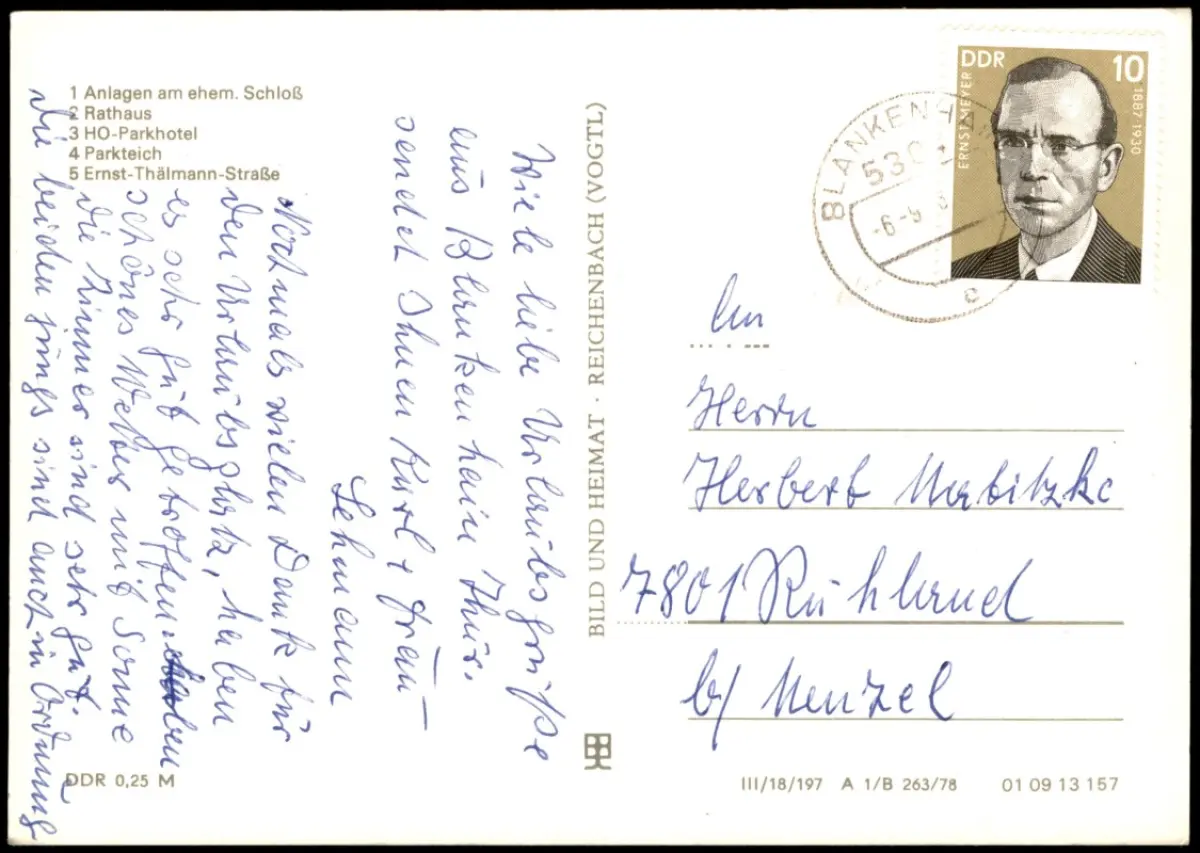 1 Anlagen am ehem. Schloß
2 Rathaus
3 HO-Parkhotel
4 Parkteich
5 Ernst-Thälmann-Straße
Viele liebe Urlaubsgrüße
aus Blankenhain Thür.
sendet Ihnen Karl + Frau
Lehmann
Nochmals vielen Dank für
den Urlaubsplatz, haben
es sehr gut getroffen haben
schönes Wetter mit Sonne
die Zimmer sind sehr gut.
die beiden jungs sind auch in Ordnung
DDR 0,25 M
BILD UND HEIMAT · REICHENBACH (VOGTL)
DDR 10
ERNST MEYER
1887-1930
BLANKENHAIN
530
-6.-9
c
An
Herrn
Herbert Matitzke
7801 Ruhland
b/ Menzel
III/18/197 A 1/B 263/78 01 09 13 157